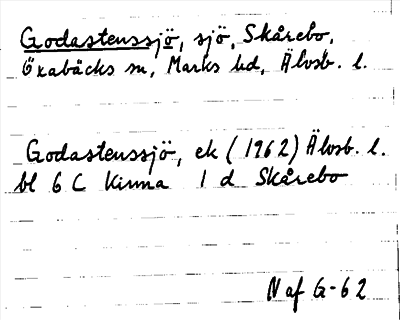 Godastenssjö, sjö, Skårebo,
Öxabäcks sn, Marks hd, Älvsb. l.
Godastenssjö, ek (1962) Älvsb. l.
bl 6 C Kinna 1 d Skårebo
N af G-62